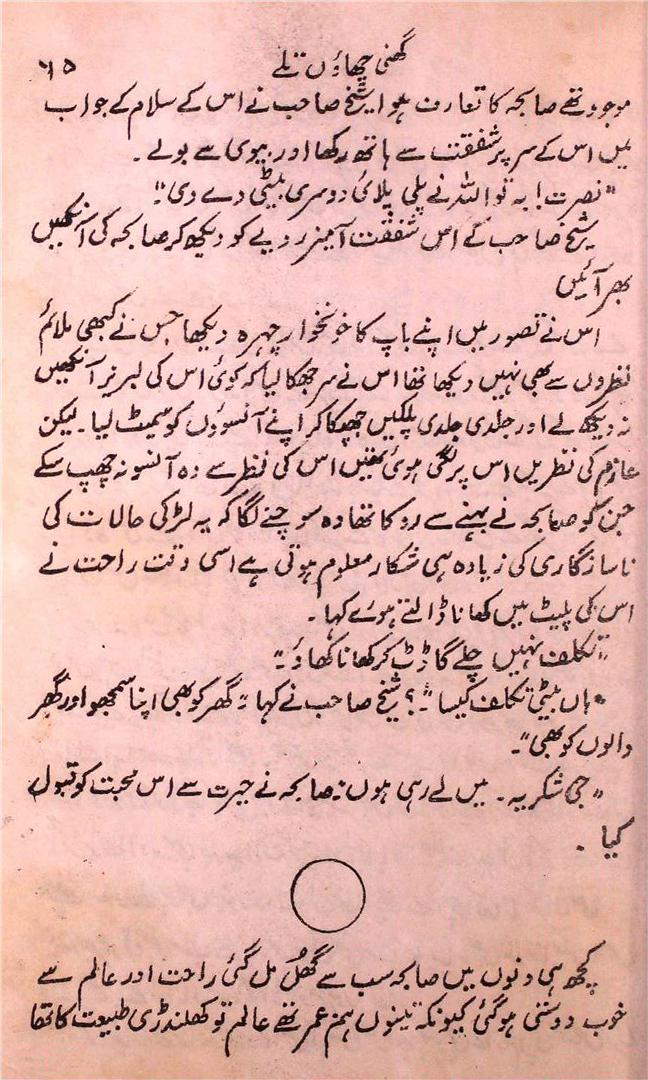 گھنی چھاؤں تلے
۶۵
موجود تھے صابحہ کا تعارف ہوا۔ شیخ صاحب نے اس کے سلام کے جواب
میں اس کے سر پر شفقت سے ہاتھ رکھا اور بیوی سے بولے۔
"نصرت! یہ تو اللہ نے پلی پلائی دوسری بیٹی دے دی"۔
شیخ صاحب کے اس شفقت آمیز رویے کو دیکھ کر صابحہ کی آنکھیں
بھر آئیں
اس نے تصور میں اپنے باپ کا خونخوار چہرہ دیکھا جس نے کبھی ملائم
نظروں سے بھی نہیں دیکھا تھا اس نے سر جھکا لیا کہ کوئی اس کی لبریز آنکھیں
نہ دیکھ لے اور جلدی جلدی پلکیں جھپکا کر اپنے آنسوؤں کو سمیٹ لیا۔ لیکن
عازم کی نظریں اس پر لگی ہوئی تھیں اس کی نظر سے وہ آنسو نہ چھپ سکے
جن کو صابحہ نے بہنے سے روکا تھا وہ سوچنے لگا کہ یہ لڑکی حالات کی
ناسازگاری کی زیادہ ہی شکار معلوم ہوتی ہے اسی وقت راحت نے
اس کی پلیٹ میں کھانا ڈالتے ہوئے کہا۔
"تکلف نہیں چلے گا ڈٹ کر کھانا کھاؤ"۔
"ہاں بیٹی تکلف کیسا"۔؟ شیخ صاحب نے کہا "گھر کو بھی اپنا سمجھو اور گھر
والوں کو بھی"۔
"جی شکریہ۔ میں لے رہی ہوں" صابحہ نے حیرت سے اس محبت کو قبول
کیا۔
کچھ ہی دنوں میں صابحہ سب سے گھُل مل گئی راحت اور عالم سے
خوب دوستی ہوگئی کیونکہ تینوں ہم عمر تھے عالم تو کھلنڈری طبیعت کا تھا